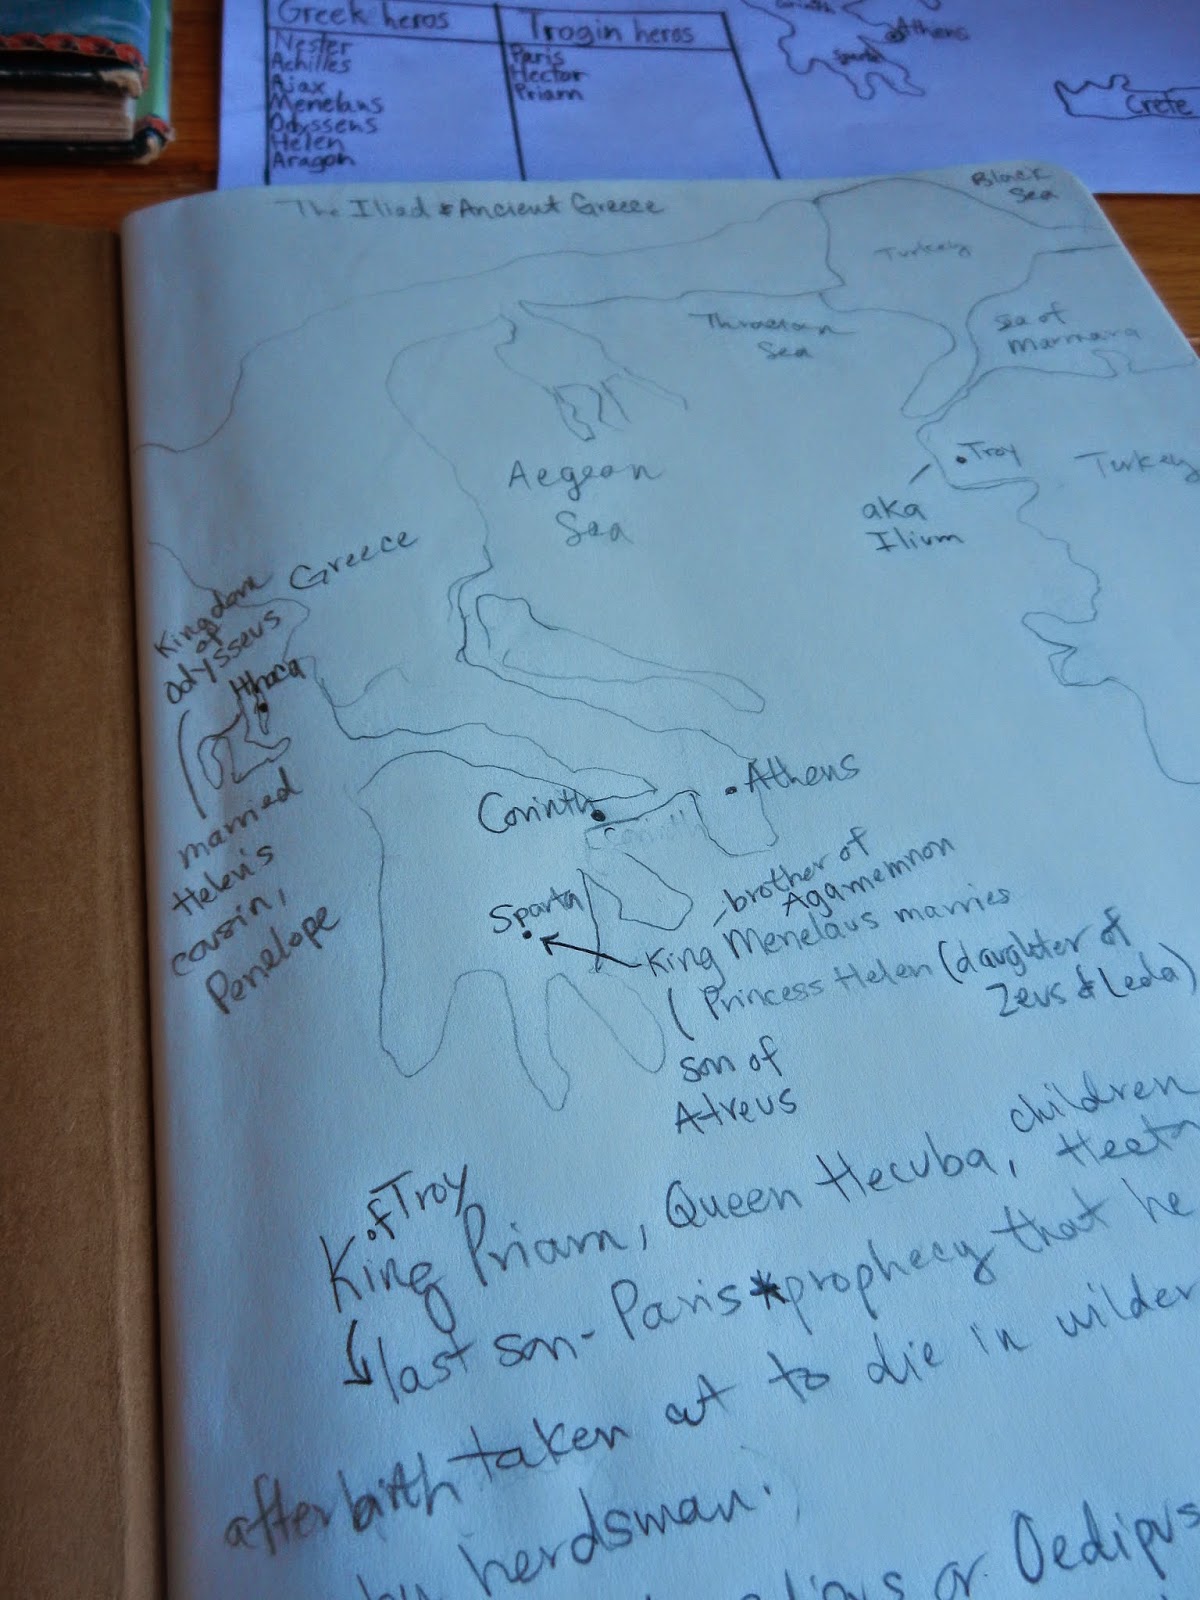 Greek heros
Nester
Achilles
Ajax
Menelaus
Odyssens
Helen
Aragon
Trogin heros
Paris
Hector
Priam
Athens
Sparta
Crete
The Iliad & Ancient Greece
Black
Sea
Turkey
Thracian
Sea
Sea of
Marmara
Troy
Turkey
aka
Ilium
Aegean
Sea
Greece
Kingdom
of
Odysseus
Ithaca
married
Helen's
cousin,
Penelope
Corinth
Corinth
Athens
Sparta
brother of
Agamemnon
King Menelaus marries
(Princess Helen (daughter of
Zeus & Leda)
son of
Atreus
of Troy
King Priam, Queen Hecuba, children
last son - Paris * prophecy that he
after birth taken out to die in wilder
herdsman.
or Oedipus